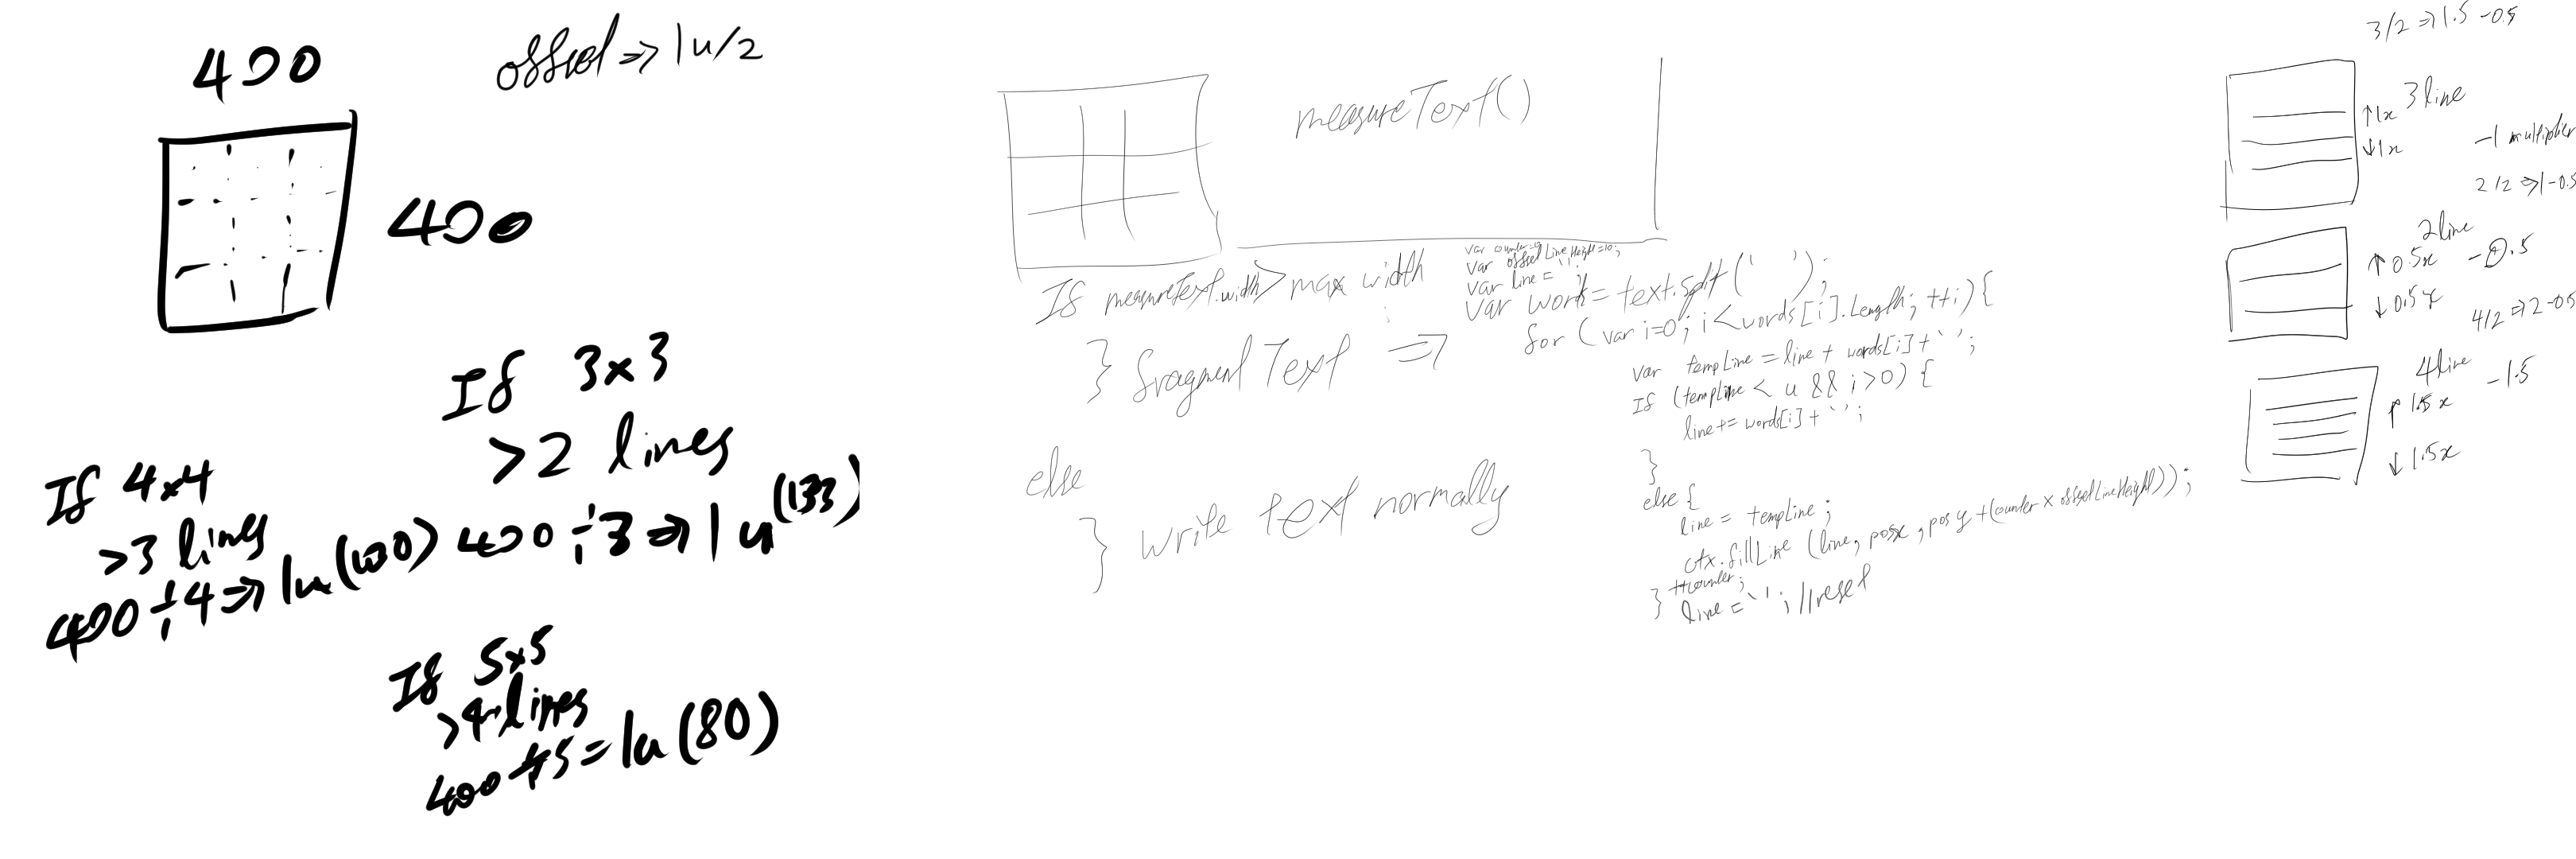 400
offset => 1u/2
400
If 3x3
>2 lines
400÷3 => 1u(133)
If 4x4
>3 lines
400÷4 => 1u(100)
If 5x5
>4 lines
400÷5 = 1u(80)
measureText()
If measureText.width > max width
} fragment Text =>
else
} write text normally
var counter=0;
var offsetLineHeight=10;
var line = ' ';
var words = text.split(' ');
for (var i=0; i<words[i].length; ++i){
var tempLine = line + words[i] + ' ';
If (tempLine < u && i>0) {
line += words[i] + ' ';
}
else {
line = tempLine;
ctx.fillLine (line, posx, posy + (counter x offsetLineHeight));
++counter;
} line = ' '; //reset
3/2 => 1.5 -0.5
3 line
↑1x
↓1x
-1 multiplier
2/2 => 1 -0.5
2 line
↑0.5x
-0.5
↓0.5x
4/2 => 2 -0.5
4 line
-1.5
↑1.5x
↓1.5x